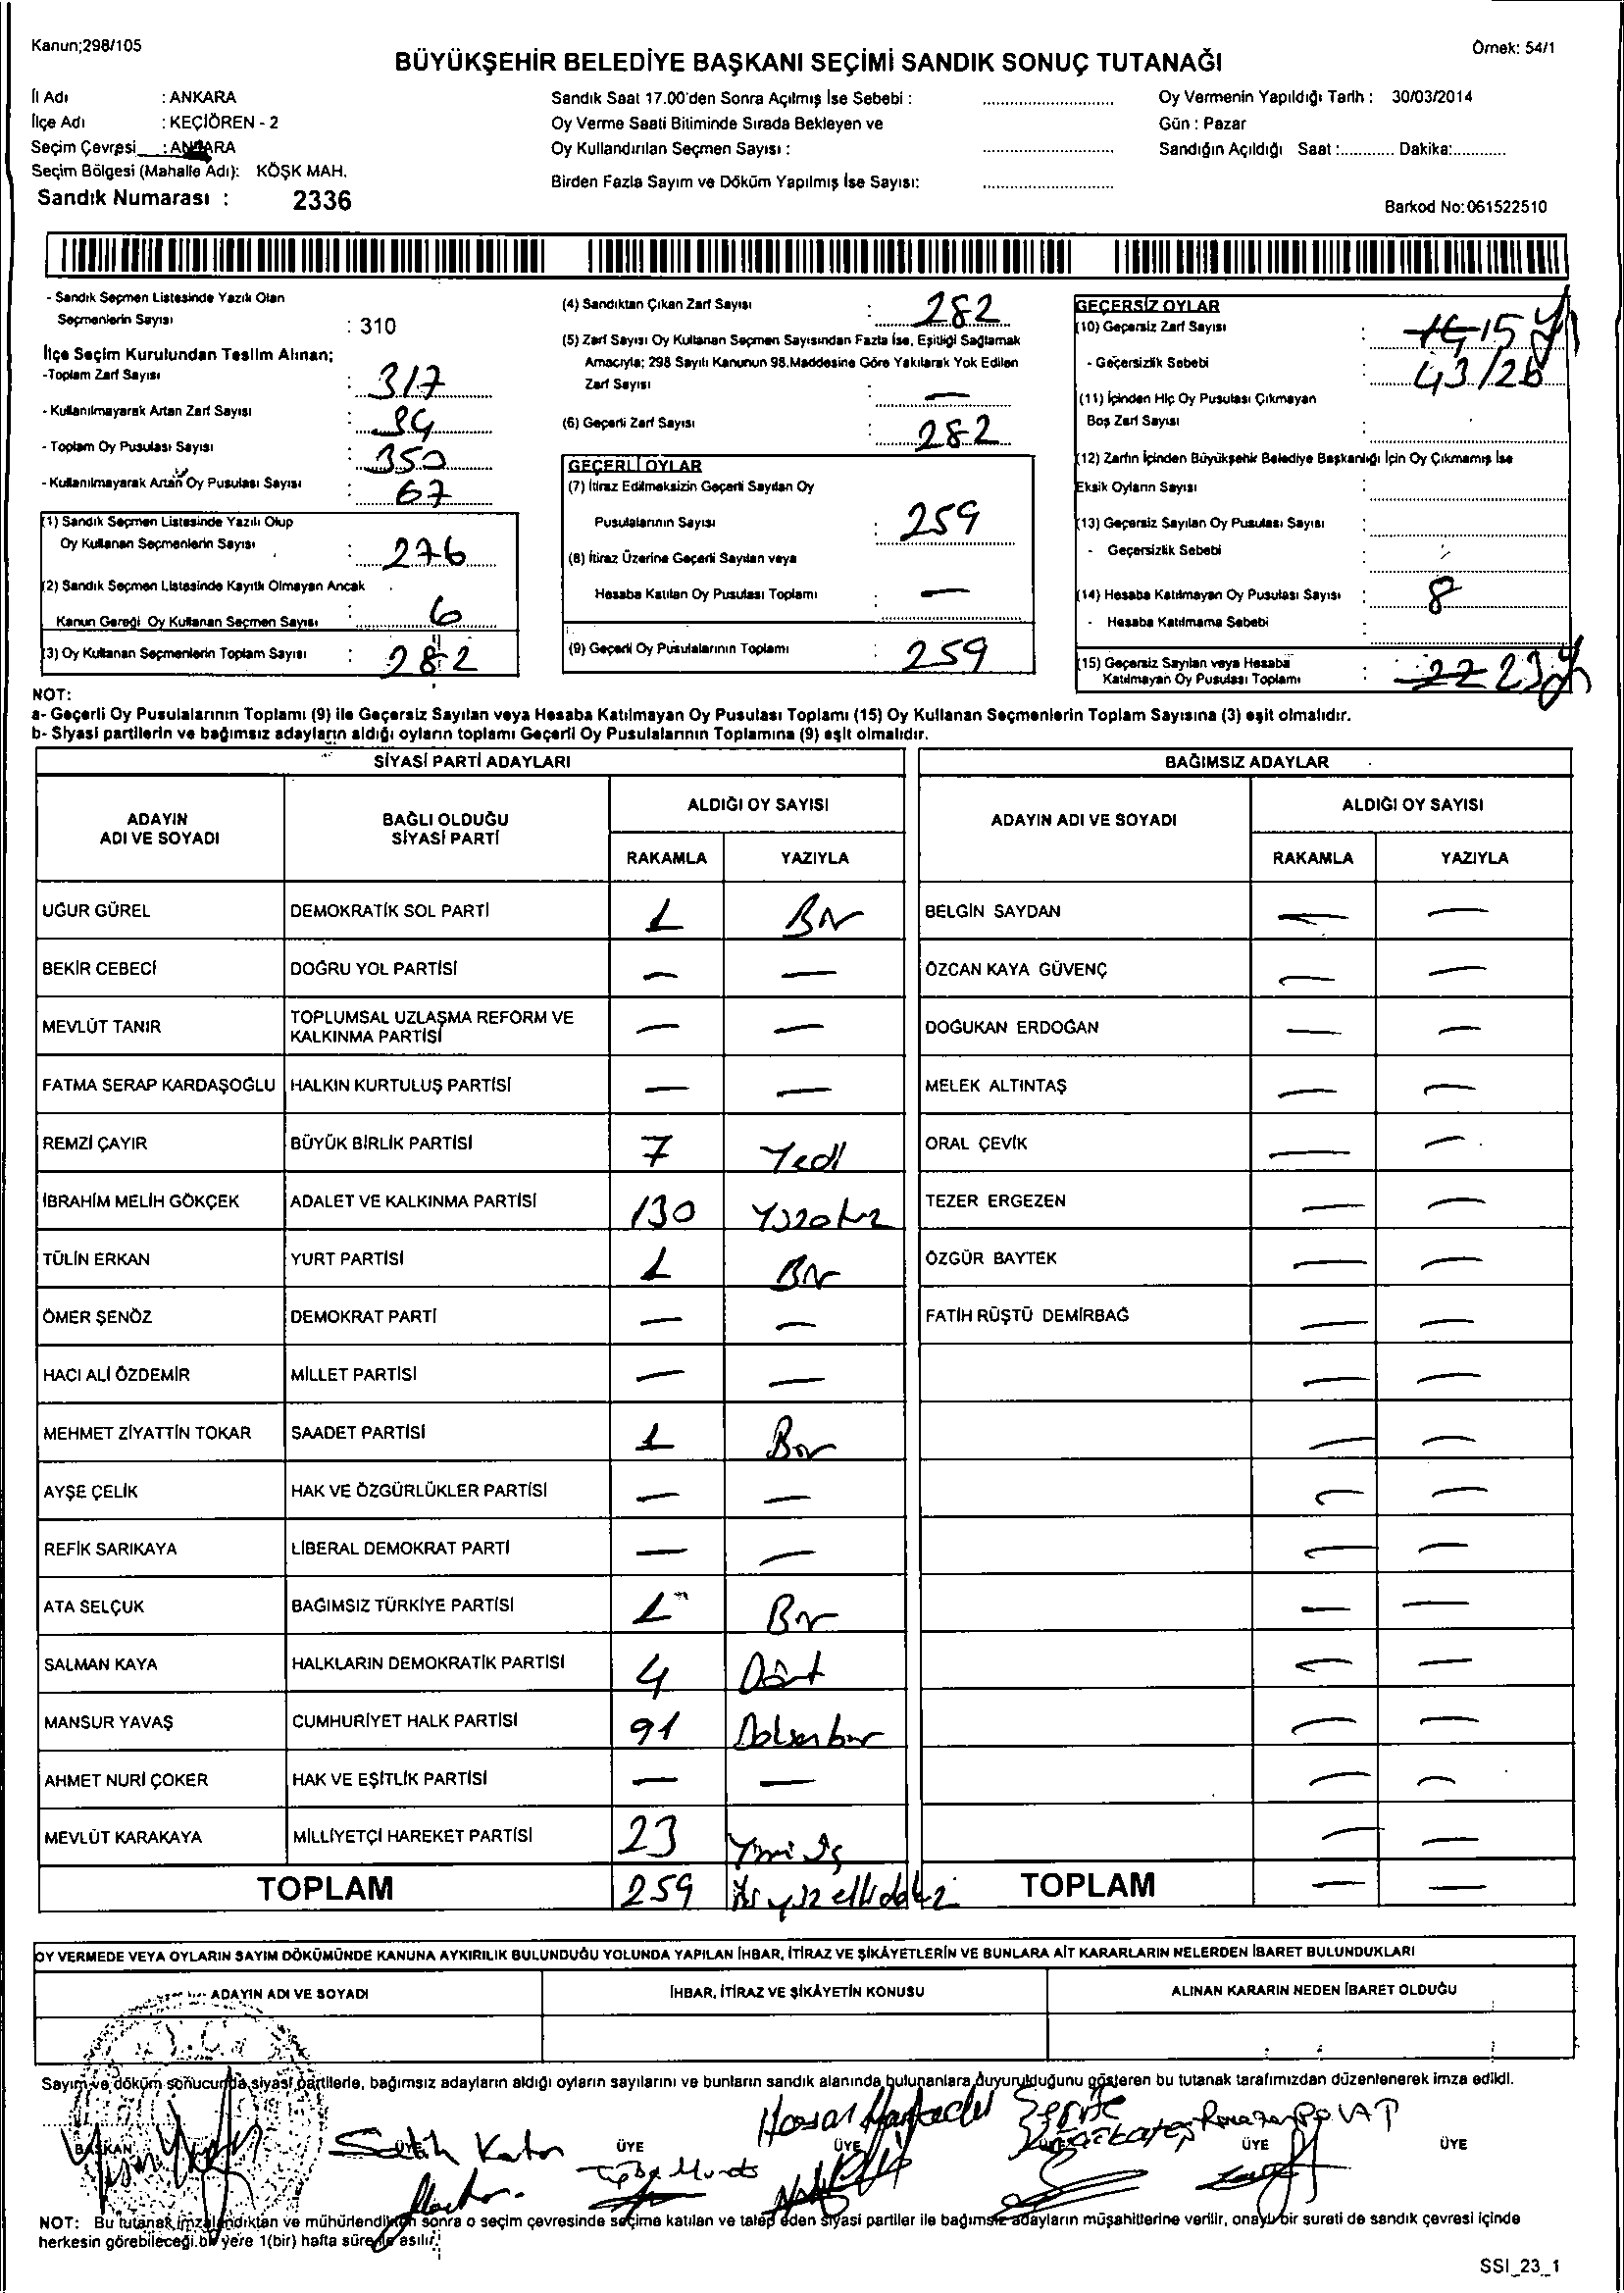 Kanun;298/105
Örnek: 54/1
BÜYÜKŞEHİR BELEDİYE BAŞKANI SEÇİMİ SANDIK SONUÇ TUTANAĞI
İl Adı : ANKARA
İlçe Adı : KEÇİÖREN - 2
Seçim Çevresi : ANKARA
Seçim Bölgesi (Mahalle Adı): KÖŞK MAH.
Sandık Numarası : 2336
Sandık Saat 17.00'den Sonra Açılmış İse Sebebi :
Oy Verme Saati Bitiminde Sırada Bekleyen ve
Oy Kullandırılan Seçmen Sayısı :
Birden Fazla Sayım ve Döküm Yapılmış İse Sayısı:
Oy Vermenin Yapıldığı Tarih : 30/03/2014
Gün : Pazar
Sandığın Açıldığı Saat :............ Dakika:............
Barkod No:061522510
- Sandık Seçmen Listesinde Yazılı Olan
Seçmenlerin Sayısı : 310
İlçe Seçim Kurulundan Teslim Alınan;
-Toplam Zarf Sayısı : 317
- Kullanılmayarak Artan Zarf Sayısı :
- Toplam Oy Pusulası Sayısı : 350
- Kullanılmayarak Artan Oy Pusulası Sayısı : 67
(1) Sandık Seçmen Listesinde Yazılı Olup
Oy Kullanan Seçmenlerin Sayısı : 276
(2) Sandık Seçmen Listesinde Kayıtlı Olmayan Ancak
Kanun Gereği Oy Kullanan Seçmen Sayısı : 6
(3) Oy Kullanan Seçmenlerin Toplam Sayısı : 282
(4) Sandıktan Çıkan Zarf Sayısı : 282
(5) Zarf Sayısı Oy Kullanan Seçmen Sayısından Fazla İse, Eşitliği Sağlamak
Amacıyla; 298 Sayılı Kanunun 98.Maddesine Göre Yakılarak Yok Edilen
Zarf Sayısı : —
(6) Geçerli Zarf Sayısı : 282
GEÇERLİ OYLAR
(7) İtiraz Edilmeksizin Geçerli Sayılan Oy
Pusulalarının Sayısı : 259
(8) İtiraz Üzerine Geçerli Sayılan veya
Hesaba Katılan Oy Pusulası Toplamı : —
(9) Geçerli Oy Pusulalarının Toplamı : 259
GEÇERSİZ OYLAR
(10) Geçersiz Zarf Sayısı : 15
- Geçersizlik Sebebi : 43/2b
(11) İçinden Hiç Oy Pusulası Çıkmayan
Boş Zarf Sayısı :
(12) Zarfın İçinden Büyükşehir Belediye Başkanlığı İçin Oy Çıkmamış İse
Eksik Oyların Sayısı :
(13) Geçersiz Sayılan Oy Pusulası Sayısı :
- Geçersizlik Sebebi :
(14) Hesaba Katılmayan Oy Pusulası Sayısı : 8
- Hesaba Katılmama Sebebi :
(15) Geçersiz Sayılan veya Hesaba
Katılmayan Oy Pusulası Toplamı : 22 23
NOT:
a- Geçerli Oy Pusulalarının Toplamı (9) ile Geçersiz Sayılan veya Hesaba Katılmayan Oy Pusulası Toplamı (15) Oy Kullanan Seçmenlerin Toplam Sayısına (3) eşit olmalıdır.
b- Siyasi partilerin ve bağımsız adayların aldığı oyların toplamı Geçerli Oy Pusulalarının Toplamına (9) eşit olmalıdır.
SİYASİ PARTİ ADAYLARI
BAĞIMSIZ ADAYLAR
ADAYIN ADI VE SOYADI
BAĞLI OLDUĞU SİYASİ PARTİ
ALDIĞI OY SAYISI
RAKAMLA YAZIYLA
ADAYIN ADI VE SOYADI
ALDIĞI OY SAYISI
RAKAMLA YAZIYLA
UĞUR GÜREL DEMOKRATİK SOL PARTİ 1 Bir BELGİN SAYDAN — —
BEKİR CEBECİ DOĞRU YOL PARTİSİ — — ÖZCAN KAYA GÜVENÇ — —
MEVLÜT TANIR TOPLUMSAL UZLAŞMA REFORM VE KALKINMA PARTİSİ — — DOĞUKAN ERDOĞAN — —
FATMA SERAP KARDAŞOĞLU HALKIN KURTULUŞ PARTİSİ — — MELEK ALTINTAŞ — —
REMZİ ÇAYIR BÜYÜK BİRLİK PARTİSİ 7 Yedi ORAL ÇEVİK — —
İBRAHİM MELİH GÖKÇEK ADALET VE KALKINMA PARTİSİ 130 Yüzotuz TEZER ERGEZEN — —
TÜLİN ERKAN YURT PARTİSİ 1 Bir ÖZGÜR BAYTEK — —
ÖMER ŞENÖZ DEMOKRAT PARTİ — — FATİH RÜŞTÜ DEMİRBAĞ — —
HACI ALİ ÖZDEMİR MİLLET PARTİSİ — — — —
MEHMET ZİYATTİN TOKAR SAADET PARTİSİ 1 Bir — —
AYŞE ÇELİK HAK VE ÖZGÜRLÜKLER PARTİSİ — — — —
REFİK SARIKAYA LİBERAL DEMOKRAT PARTİ — — — —
ATA SELÇUK BAĞIMSIZ TÜRKİYE PARTİSİ 1 Bir — —
SALMAN KAYA HALKLARIN DEMOKRATİK PARTİSİ 4 Dört — —
MANSUR YAVAŞ CUMHURİYET HALK PARTİSİ 91 — —
AHMET NURİ ÇOKER HAK VE EŞİTLİK PARTİSİ — — — —
MEVLÜT KARAKAYA MİLLİYETÇİ HAREKET PARTİSİ 23 Yirmi üç — —
TOPLAM 259 TOPLAM — —
OY VERMEDE VEYA OYLARIN SAYIM DÖKÜMÜNDE KANUNA AYKIRILIK BULUNDUĞU YOLUNDA YAPILAN İHBAR, İTİRAZ VE ŞİKÂYETLERİN VE BUNLARA AİT KARARLARIN NELERDEN İBARET BULUNDUKLARI
ADAYIN ADI VE SOYADI İHBAR, İTİRAZ VE ŞİKÂYETİN KONUSU ALINAN KARARIN NEDEN İBARET OLDUĞU
Sayım ve döküm sonucunda siyasi partilerle, bağımsız adayların aldığı oyların sayılarını ve bunların sandık alanında bulunanlara duyurulduğunu gösteren bu tutanak tarafımızdan düzenlenerek imza edildi.
BAŞKAN ÜYE ÜYE ÜYE ÜYE ÜYE ÜYE
NOT: Bu tutanak imzalandıktan ve mühürlendikten sonra o seçim çevresinde seçime katılan ve talep eden siyasi partiler ile bağımsız adayların müşahitlerine verilir, onaylı bir sureti de sandık çevresi içinde
herkesin görebileceği bir yere 1(bir) hafta süre ile asılır.
SSI_23_1